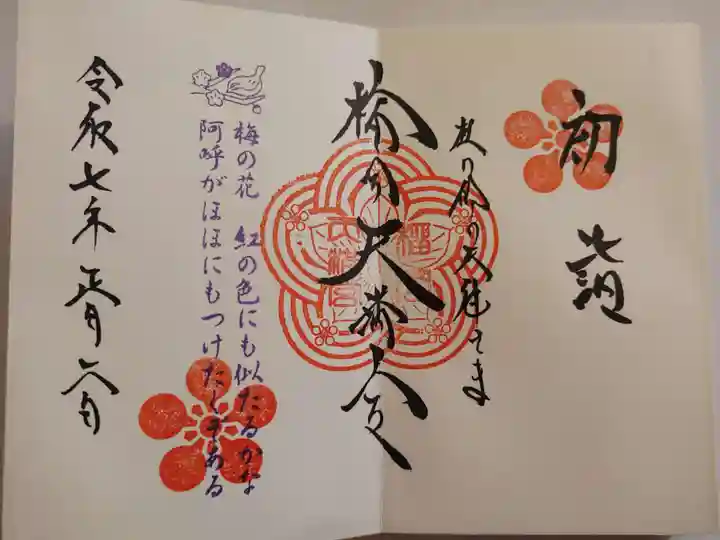 初詣
杜の都の天神さま
榴岡天満宮
梅の花 紅の色にも似たるかな
阿呼がほほにもつけたくぞある
令和七年正月六日